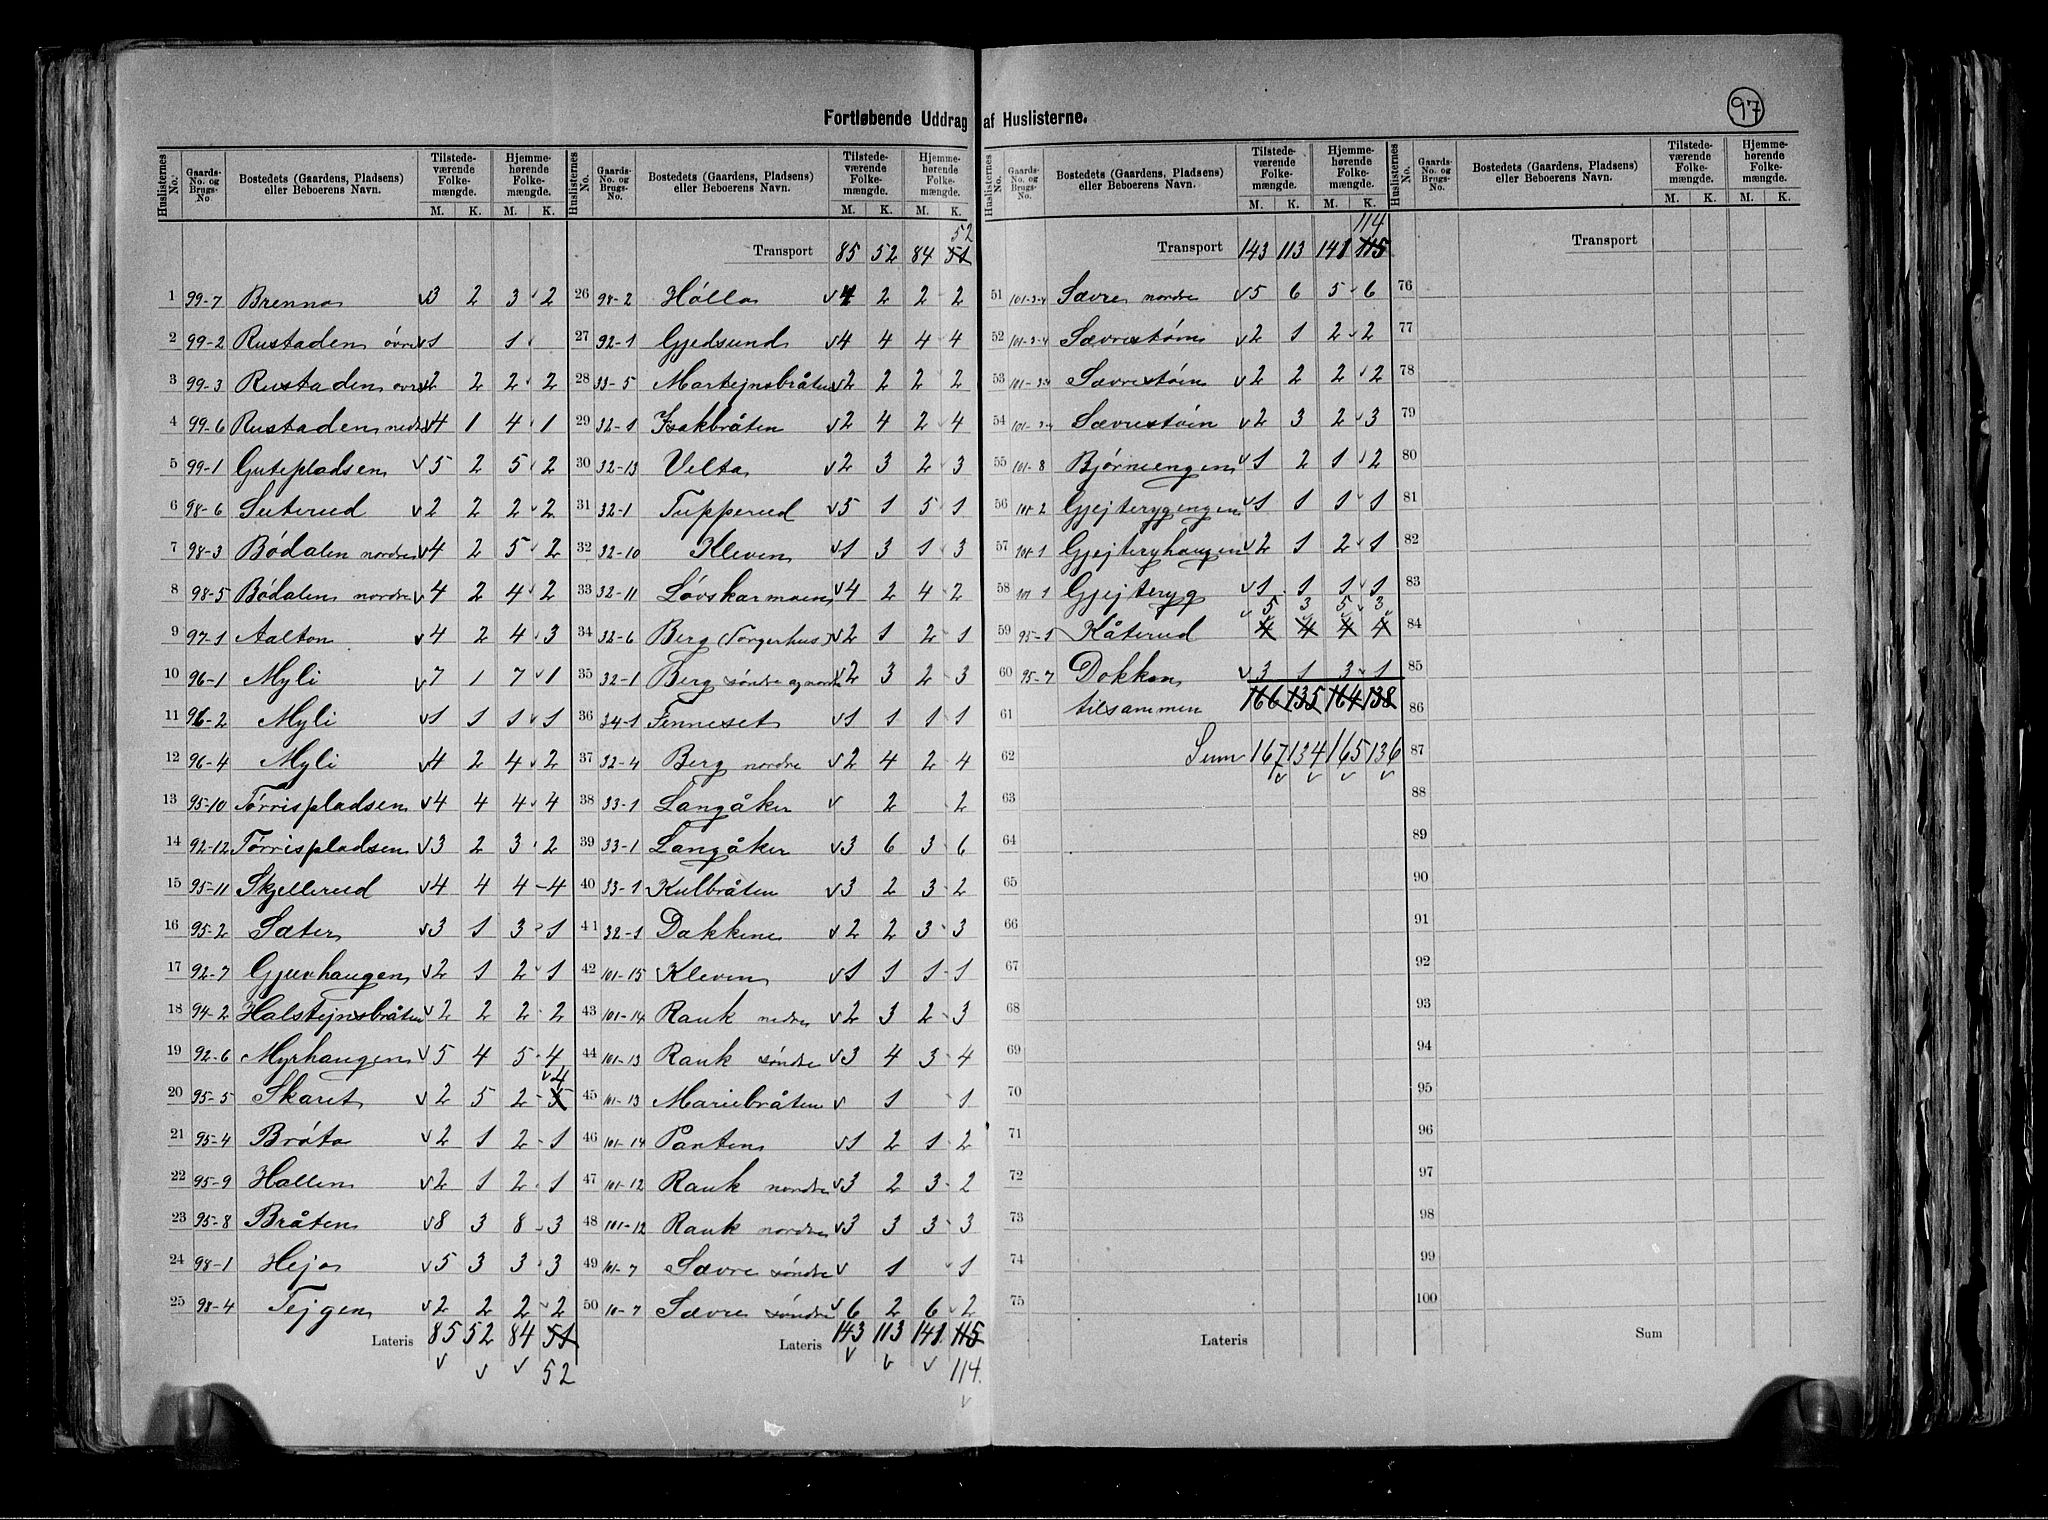 97
Fortløbende Uddrag af Huslisterne.
Huslisternes No. Gaards-No. og Brugs-No Bostedets (Gaardens, Pladsens) eller Beboerens Navn. Tilstedeværende Folkemængde. M. K. Hjemmehørende Folkemængde. M. K.
1 99-7 Brenna 3 2 3 2
2 99-2 Rustaden øvre 1 1
3 99-3 Rustaden øvre 2 2 2 2
4 99-6 Rustaden nedre 4 1 4 1
5 99-1 Gutepladsen 5 2 5 2
6 98-6 Suterud 2 2 2 2
7 98-3 Bødalen nordre 4 2 5 2
8 98-5 Bødalen nordre 4 2 4 2
9 97-1 Aalton 4 2 4 3
10 96-1 Myli 7 1 7 1
11 96-2 Myli 1 1 1 1
12 96-4 Myli 4 2 4 2
13 95-10 Tørrispladsen 4 4 4 4
14 92-12 Tørrispladsen 3 2 3 2
15 95-11 Skjellerud 4 4 4 4
16 95-2 Sæter 3 1 3 1
17 92-7 Gjuvhaugen 2 1 2 1
18 94-2 Halstejnsbråten 2 2 2 2
19 92-6 Myrhaugen 5 4 5 4
20 95-5 Skaret 2 5 2 5 4
21 95-4 Bråta 2 1 2 1
22 95-9 Hallen 2 1 2 1
23 95-8 Bråten 8 3 8 3
24 98-1 Heja 5 3 3 3
25 98-4 Tejgen 2 2 2 2
Lateris 85 52 84 51
52
Huslisternes No. Gaards-No. og Brugs-No. Bostedets (Gaardens, Pladsens) eller Beboerens Navn. Tilstedeværende Folkemængde. M. K. Hjemmehørende Folkemængde. M. K.
52
Transport 85 52 84 51
26 98-2 Hølla 4 2 2 2
27 92-1 Gjedsund 4 4 4 4
28 33-5 Martejnsbråten 2 2 2 2
29 32-1 Isakbråten 2 4 2 4
30 32-13 Velta 2 3 2 3
31 32-1 Tupperud 5 1 5 1
32 32-10 Kleven 1 3 1 3
33 32-11 Løvskarmoen 4 2 4 2
34 32-6 Berg (Torgerhus) 2 1 2 1
35 32-1 Berg søndre og nordre 2 3 2 3
36 34-1 Finneset 1 1 1 1
37 32-4 Berg nordre 2 4 2 4
38 33-1 Langåker 2 2
39 33-1 Langåker 3 6 3 6
40 33-1 Kulbråten 3 2 3 2
41 32-1 Dokkene 2 2 3 3
42 101-15 Kleven 1 1 1 1
43 101-14 Rauk nedre 2 3 2 3
44 101-13 Rauk søndre 3 4 3 4
45 101-13 Mariebråten 1 1
46 101-14 Panten 1 2 1 2
47 101-12 Rauk nordre 3 2 3 2
48 101-12 Rauk nordre 3 3 3 3
49 101-7 Sævre søndre 1 1
50 10-7 Sævre søndre 6 2 6 2
Lateris 143 113 141 115
114
Huslisternes No. Gaards-No. og Brugs-No. Bostedets (Gaardens, Pladsens) eller Beboerens Navn. Tilstedeværende Folkemængde. M. K. Hjemmehørende Folkemængde. M. K.
114
Transport 143 113 141 115
51 101-3-4 Sævre nordre 5 6 5 6
52 101-3-4 Sævrestøin 2 1 2 2
53 101-3-4 Sævrestøin 2 2 2 2
54 101-3-4 Sævrestøin 2 3 2 3
55 101-8 Bjørneengen 1 2 1 2
56 101-2 Gjejterygengen 1 1 1 1
57 101-1 Gjejteryhaugen 2 1 2 1
58 101-1 Gjejteryg 1 1 1 1
5 3 5 3
59 95-1 Kåterud 4 4 4 4
60 95-7 Dokken 3 1 3 1
61 tilsammen 166 135 164 138
62 Sum 167 134 165 136
63
64
65
66
67
68
69
70
71
72
73
74
75
Lateris
Huslisternes No. Gaards-No. og Brugs-No. Bostedets (Gaardens, Pladsens) eller Beboerens Navn. Tilstedeværende Folkemængde. M. K. Hjemmehørende Folkemængde. M. K.
Transport
76
77
78
79
80
81
82
83
84
85
86
87
88
89
90
91
92
93
94
95
96
97
98
99
100
Sum